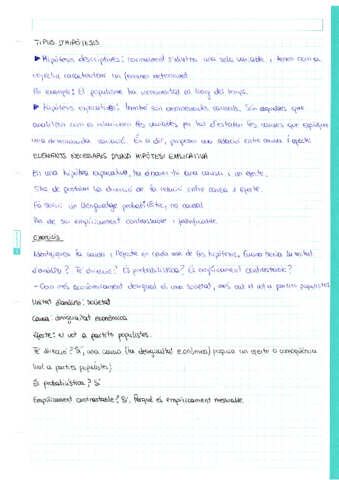 TIPUS D'HIPÒTESIS
▶ Hipòtesis descriptives: normalment s'identifica una sola variable, i tenen com a
objectiu caracteritzar un fenomen determinat
Per exemple: El populisme ha incrementat al llarg del temps.
▶ Hipòtesis explicatives: també són anomenades causals. Són aquelles que
analitzen com es relacionen les variables per tal d'establir les causes que expliquen
una determinada variació. És a dir, proposen una relació entre causa i efecte.
ELEMENTS NECESSARIS D'UNA HIPÒTESI EXPLICATIVA
En una hipòtesi explicativa, hi ha d'haver-hi una causa i un efecte.
S'ha de postular la direcció de la relació entre causa i efecte.
Fa servir un llenguatge probabilístic, no causal
Ha de ser empíricament contrastable i falsificable.
EXERCICIS
Identifiqueu la causa i l'efecte en cada una de les hipòtesis. Quina seria la unitat
d'anàlisi? Té direcció? És probabilística? És empíricament contrastable?
- Com més econòmicament desigual és una societat, més alt el vot a partits populistes
Unitat d'anàlisi: societat
Causa: desigualtat econòmica
Efecte: el vot a partits populistes.
Té direcció? Sí, una causa (la desigualtat econòmica) provoca un efecte o conseqüència
(vot a partits populistes)
És probabilística? Sí
Empíricament contrastable? Sí. Perquè és empíricament mesurable.